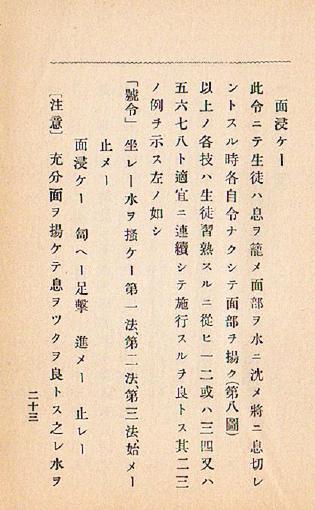 面浸ケー
此令ニテ生徒ハ息ヲ籠メ面部ヲ水ニ沈メ將ニ息切レ
ントスル時各自令ナクシテ面部ヲ揚ク(第八圖)
以上ノ各技ハ生徒習熟スルニ從ヒ一二或ハ三四又ハ
五六七八ト適宜ニ連續シテ施行スルヲ良トス其二三
ノ例ヲ示ス左ノ如シ
「號令」坐レー水ヲ搔ケー第一法、第二法、第三法、始メー
止メー
面浸ケー 匐ヘー足擊 進メー 止レー
〔注意〕充分面ヲ揚ケテ息ヲツクヲ良トス之レ水ヲ
二十三